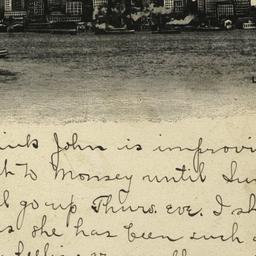 John is improvi
to Monsey until Sun
go up Thurs. eve. I sh
she has been such a